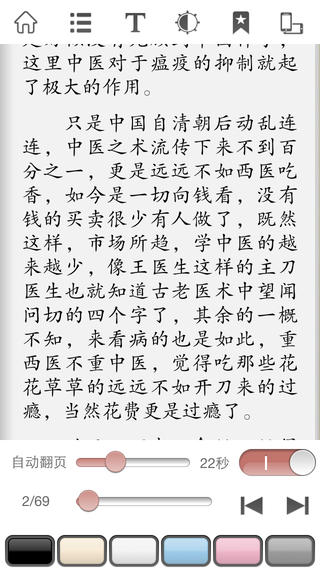 这里中医对于瘟疫的抑制就起
了极大的作用。
只是中国自清朝后动乱连
连，中医之术流传下来不到百
分之一，更是远远不如西医吃
香，如今是一切向钱看，没有
钱的买卖很少有人做了，既然
这样，市场所趋，学中医的越
来越少，像王医生这样的主刀
医生也就知道古老医术中望闻
问切的四个字了，其余的一概
不知，来看病的也是如此，重
西医不重中医，觉得吃那些花
花草草的远远不如开刀来的过
瘾，当然花费更是过瘾了。
自动翻页
22秒
2/69